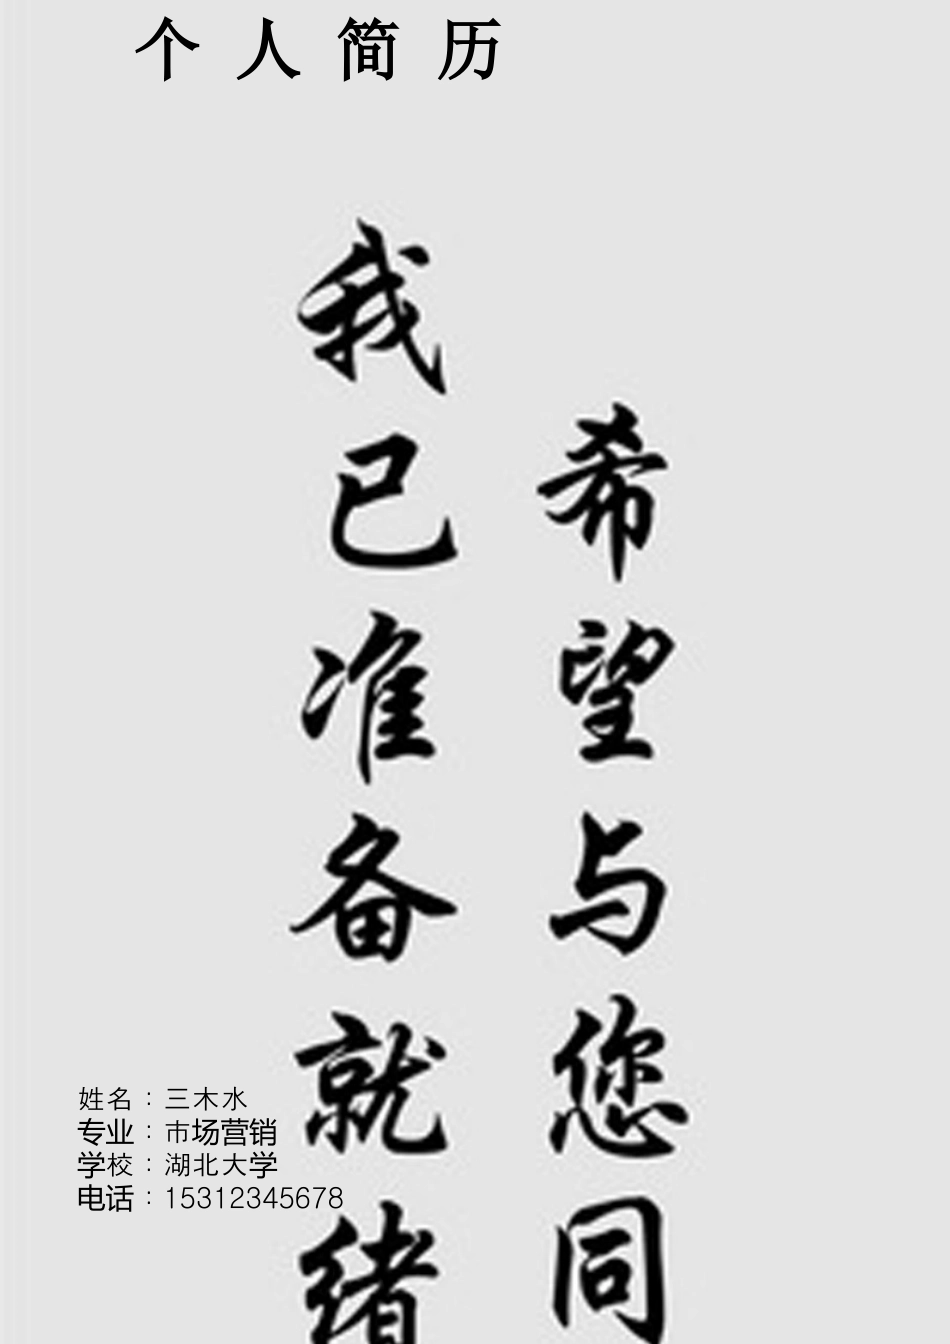 个人简历
我已准备就绪
希望与您同
姓名：三木水
专业：市场营销
学校：湖北大学
电话：15312345678